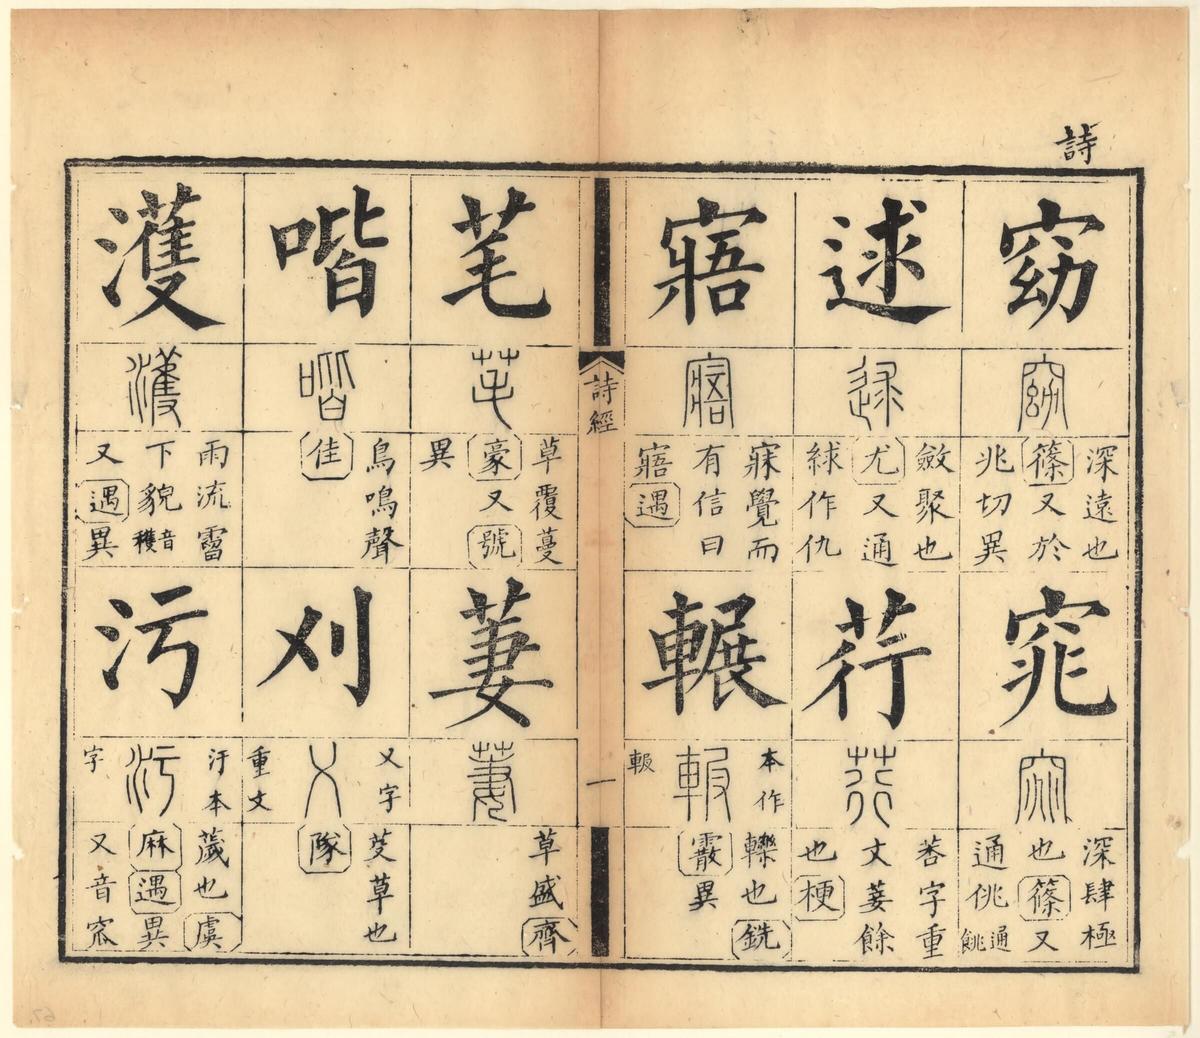 詩
窈
窈
深遠也
篠又於
兆切異
窕
窕
深肆極
也篠又
通佻通餆
逑
逑
斂聚也
尤又通
絿作仇
荇
荇
莕字重
文萎餘
也梗
寤
寤
寐覺而
有信曰
寤遇
輾
本作
𨋚
轢也銑
霰異
詩經
一
芼
芼
草覆蔓
豪又號
異
萋
萋
草盛齊
喈
喈
鳥鳴聲
佳
刈
乂字
乂
重文
芟草也
隊
濩
濩
雨流霤
下貌音穫
又遇異
污
汙本
污
字
薉也虞
麻遇異
又音窊